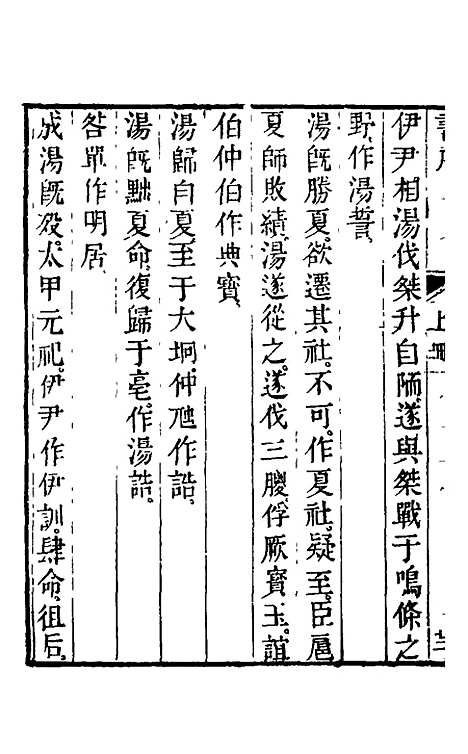 伊尹相湯伐桀升自陑遂與桀戰于鳴條之
野作湯誓
湯旣勝夏欲遷其社不可作夏社疑至臣扈
夏師敗績湯遂從之遂伐三朡俘厥寶玉誼
伯仲伯作典寶
湯歸自夏至于大坰仲虺作誥
湯旣黜夏命復歸于亳作湯誥
咎單作明居
成湯旣殁太甲元祀伊尹作伊訓肆命徂后